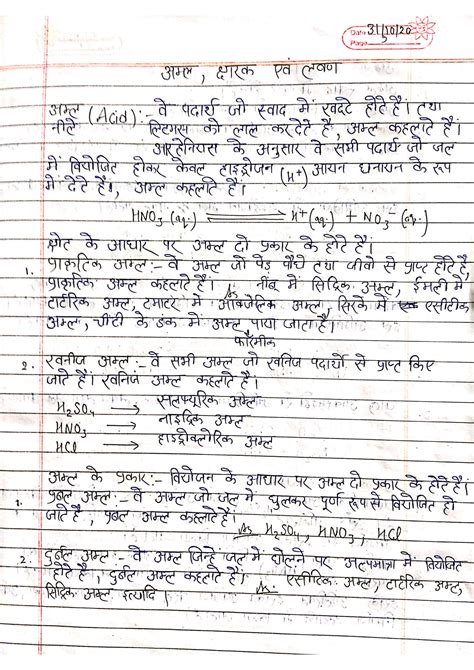 Date 31/10/20
Page
अम्ल, क्षारक एवं लवण
अम्ल (Acid):- वे पदार्थ जो स्वाद में खट्टे होते हैं। तथा
नीले लिटमस को लाल कर देते हैं, अम्ल कहलाते हैं।
आरहेनियस के अनुसार वे सभी पदार्थ जो जल
में वियोजित होकर केवल हाइड्रोजन (H+) आयन धनायन के रूप
में देते हैं, अम्ल कहलाते हैं।
HNO3 (aq.) ⇌ H+(aq.) + NO3-(aq.)
स्रोत के आधार पर अम्ल दो प्रकार के होते हैं।
1. प्राकृतिक अम्ल:- वे अम्ल जो पेड़ पौधे तथा जीवो से प्राप्त होते हैं
प्राकृतिक अम्ल कहलाते हैं। नींबू में सिट्रिक अम्ल, ईमली में
टार्टरिक अम्ल, टमाटर में ऑक्जेलिक अम्ल, सिरके में एसीटीक
अम्ल, चींटी के डंक में अम्ल पाया जाता है।
फॉरमीक
2. खनीज अम्ल:- वे सभी अम्ल जो खनिज पदार्थो से प्राप्त किए
जाते हैं। खनिज अम्ल कहलाते हैं।
H2SO4 → सलफ्यूरिक अम्ल
HNO3 → नाइट्रिक अम्ल
HCl → हाइड्रोक्लोरिक अम्ल
अम्ल के प्रकार:- वियोजन के आधार पर अम्ल दो प्रकार के होते हैं।
1. प्रबल अम्ल:- वे अम्ल जो जल में घुलकर पूर्ण रूप से वियोजित हो
जाते हैं, प्रबल अम्ल कहलाते हैं।
H2SO4, HNO3, HCl
2. दुर्बल अम्ल:- वे अम्ल जिन्हे जल में घोलने पर अल्पमात्रा में वियोजित
होते हैं, दुर्बल अम्ल कहलाते हैं। एसीटिक अम्ल, टार्टरिक अम्ल,
सिट्रिक अम्ल इत्यादि।